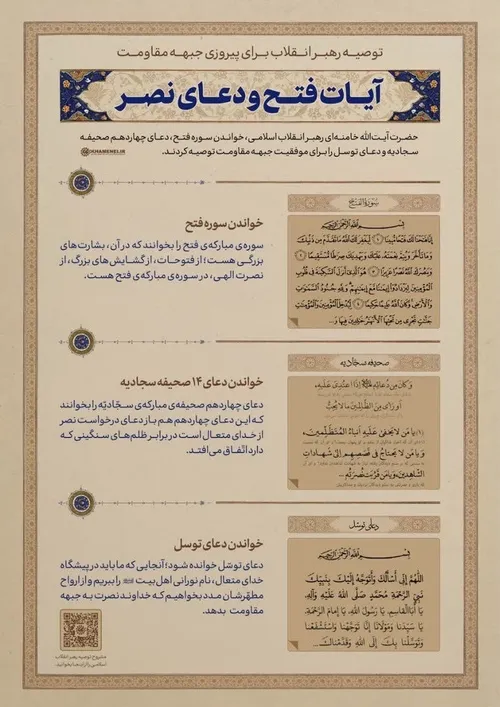 توصیه رهبر انقلاب برای پیروزی جبهه مقاومت
آیات فتح و دعای نصر
حضرت آیت‌الله خامنه‌ای رهبر انقلاب اسلامی، خواندن سوره فتح، دعای چهاردهم صحیفه
سجادیه و دعای توسل را برای موفقیت جبهه مقاومت توصیه کردند.
KHAMENEI.IR
خواندن سوره فتح
سوره‌ی مبارکه‌ی فتح را بخوانند که در آن، بشارت های
بزرگی هست؛ از فتوحات، از گشایش های بزرگ، از
نصرت الهی، در سوره‌ی مبارکه‌ی فتح هست.
سورة الفتح
بِسْمِ اللَّهِ الرَّحْمَٰنِ الرَّحِيمِ
إِنَّا فَتَحْنَا لَكَ فَتْحًا مُبِينًا ۝۱ لِيَغْفِرَ لَكَ اللَّهُ مَا تَقَدَّمَ مِنْ ذَنْبِكَ
وَمَا تَأَخَّرَ وَيُتِمَّ نِعْمَتَهُ عَلَيْكَ وَيَهْدِيَكَ صِرَاطًا مُسْتَقِيمًا ۝۲
وَيَنْصُرَكَ اللَّهُ نَصْرًا عَزِيزًا ۝۳ هُوَ الَّذِي أَنْزَلَ السَّكِينَةَ فِي قُلُوبِ
الْمُؤْمِنِينَ لِيَزْدَادُوا إِيمَانًا مَعَ إِيمَانِهِمْ وَلِلَّهِ جُنُودُ السَّمَاوَاتِ
وَالْأَرْضِ وَكَانَ اللَّهُ عَلِيمًا حَكِيمًا ۝۴ لِيُدْخِلَ الْمُؤْمِنِينَ وَالْمُؤْمِنَاتِ
جَنَّاتٍ تَجْرِي مِنْ تَحْتِهَا الْأَنْهَارُ خَالِدِينَ فِيهَا وَ...
خواندن دعای ۱۴ صحیفه سجادیه
دعای چهاردهم صحیفه‌ی مبارکه‌ی سجّادیّه را بخوانند
که این دعای چهاردهم هم باز دعای درخواست نصر
از خدای متعال است در برابر ظلم های سنگینی که
دارد اتّفاق می‌افتد.
صحیفه سجادیه
وَ كَانَ مِنْ دُعَائِهِ إِذَا اعْتُدِيَ عَلَيْهِ،
أَوْ رَأَى مِنَ الظَّالِمِينَ مَا لَا يُحِبُّ
(۱) يَا مَنْ لَا يَخْفَى عَلَيْهِ أَنْبَاءُ الْمُتَظَلِّمِينَ
وَ يَا مَنْ لَا يَحْتَاجُ فِي قَصَصِهِمْ إِلَى شَهَادَاتِ
الشَّاهِدِينَ، وَ يَا مَنْ قَرُبَتْ نُصْرَتُهُ...
خواندن دعای توسل
دعای توسّل خوانده شود؛ آنجایی که ما باید در پیشگاه
خدای متعال، نام نورانی اهل بیت را ببریم و از ارواح
مطهّرشان مدد بخواهیم که خداوند نصرت به جبهه
مقاومت بدهد.
دعای توسل
بِسْمِ اللَّهِ الرَّحْمَٰنِ الرَّحِيمِ
اللَّهُمَّ إِنِّي أَسْأَلُكَ وَأَتَوَجَّهُ إِلَيْكَ بِنَبِيِّكَ
نَبِيِّ الرَّحْمَةِ مُحَمَّدٍ صَلَّى اللَّهُ عَلَيْهِ وَآلِهِ
يَا أَبَا الْقَاسِمِ، يَا رَسُولَ اللَّهِ، يَا إِمَامَ الرَّحْمَةِ،
يَا سَيِّدَنَا وَمَوْلَانَا إِنَّا تَوَجَّهْنَا وَاسْتَشْفَعْنَا
وَتَوَسَّلْنَا بِكَ إِلَى اللَّهِ وَقَدَّمْنَاكَ...
مشروح توصیه رهبر انقلاب
اسلامی را از اینجا بخوانید.